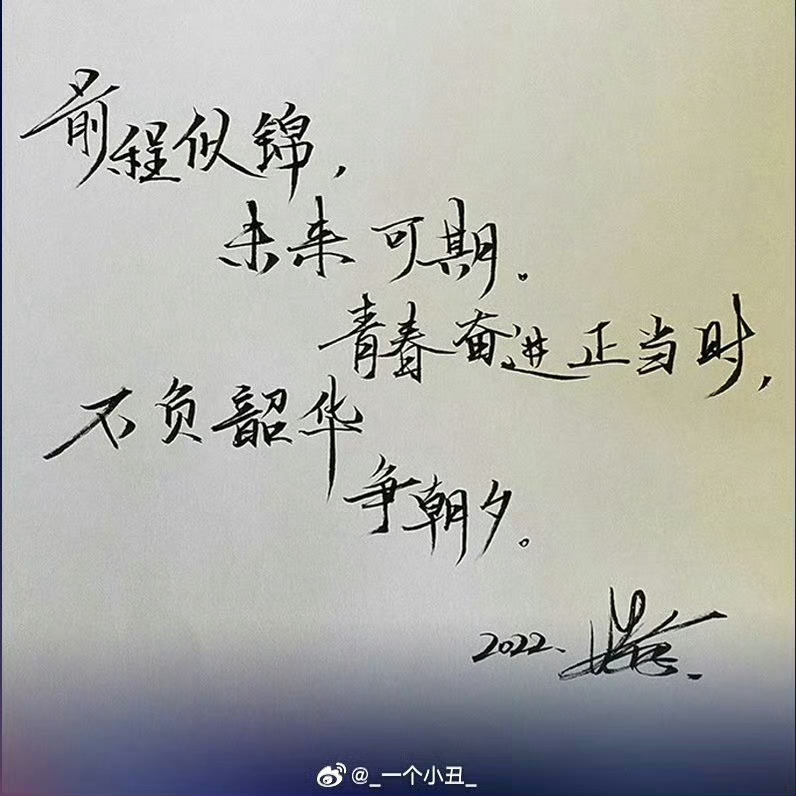 前程似锦，
未来可期。
青春奋进正当时，
不负韶华
争朝夕。
2022.
@_一个小丑_